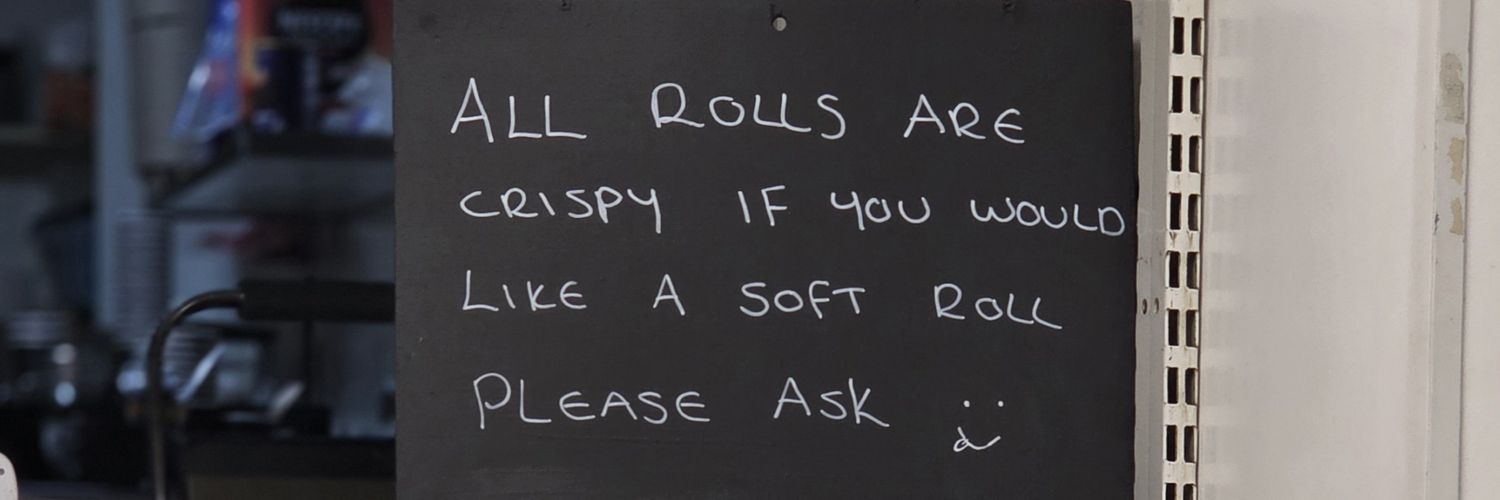 ALL ROLLS ARE
CRISPY IF YOU WOULD
LIKE A SOFT ROLL
PLEASE ASK